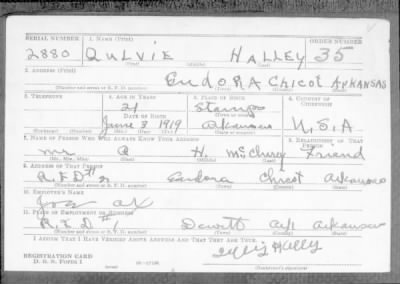 SERIAL NUMBER 1. NAME (Print) ORDER NUMBER
2880 QULVIE HALLEY 35
(First) (Middle) (Last)
2. ADDRESS (Print)
EUDORA CHICOT ARKANSAS
(Number and street or R. F. D. number) (Town) (County) (State)
3. TELEPHONE 4. AGE IN YEARS 5. PLACE OF BIRTH 6. COUNTRY OF CITIZENSHIP
21 Stamps
DATE OF BIRTH (Town or county)
June 3 1919 Arkansas U.S.A
(Exchange) (Number) (Mo.) (Day) (Yr.) (State or country)
7. NAME OF PERSON WHO WILL ALWAYS KNOW YOUR ADDRESS 8. RELATIONSHIP OF THAT PERSON
Mr H. Friend
(Mr., Mrs., Miss) (First) (Middle) (Last)
9. ADDRESS OF THAT PERSON
R.F.D # 2 Eudora Chicot Arkansas
(Number and street or R. F. D. number) (Town) (County) (State)
10. EMPLOYER'S NAME
Joe
11. PLACE OF EMPLOYMENT OR BUSINESS
R.F.D # 1 Dewitt Ark Arkansas
(Number and street or R. F. D. number) (Town) (County) (State)
I AFFIRM THAT I HAVE VERIFIED ABOVE ANSWERS AND THAT THEY ARE TRUE.
REGISTRATION CARD
D. S. S. FORM 1
16-17105
Halley
(Registrant's signature)